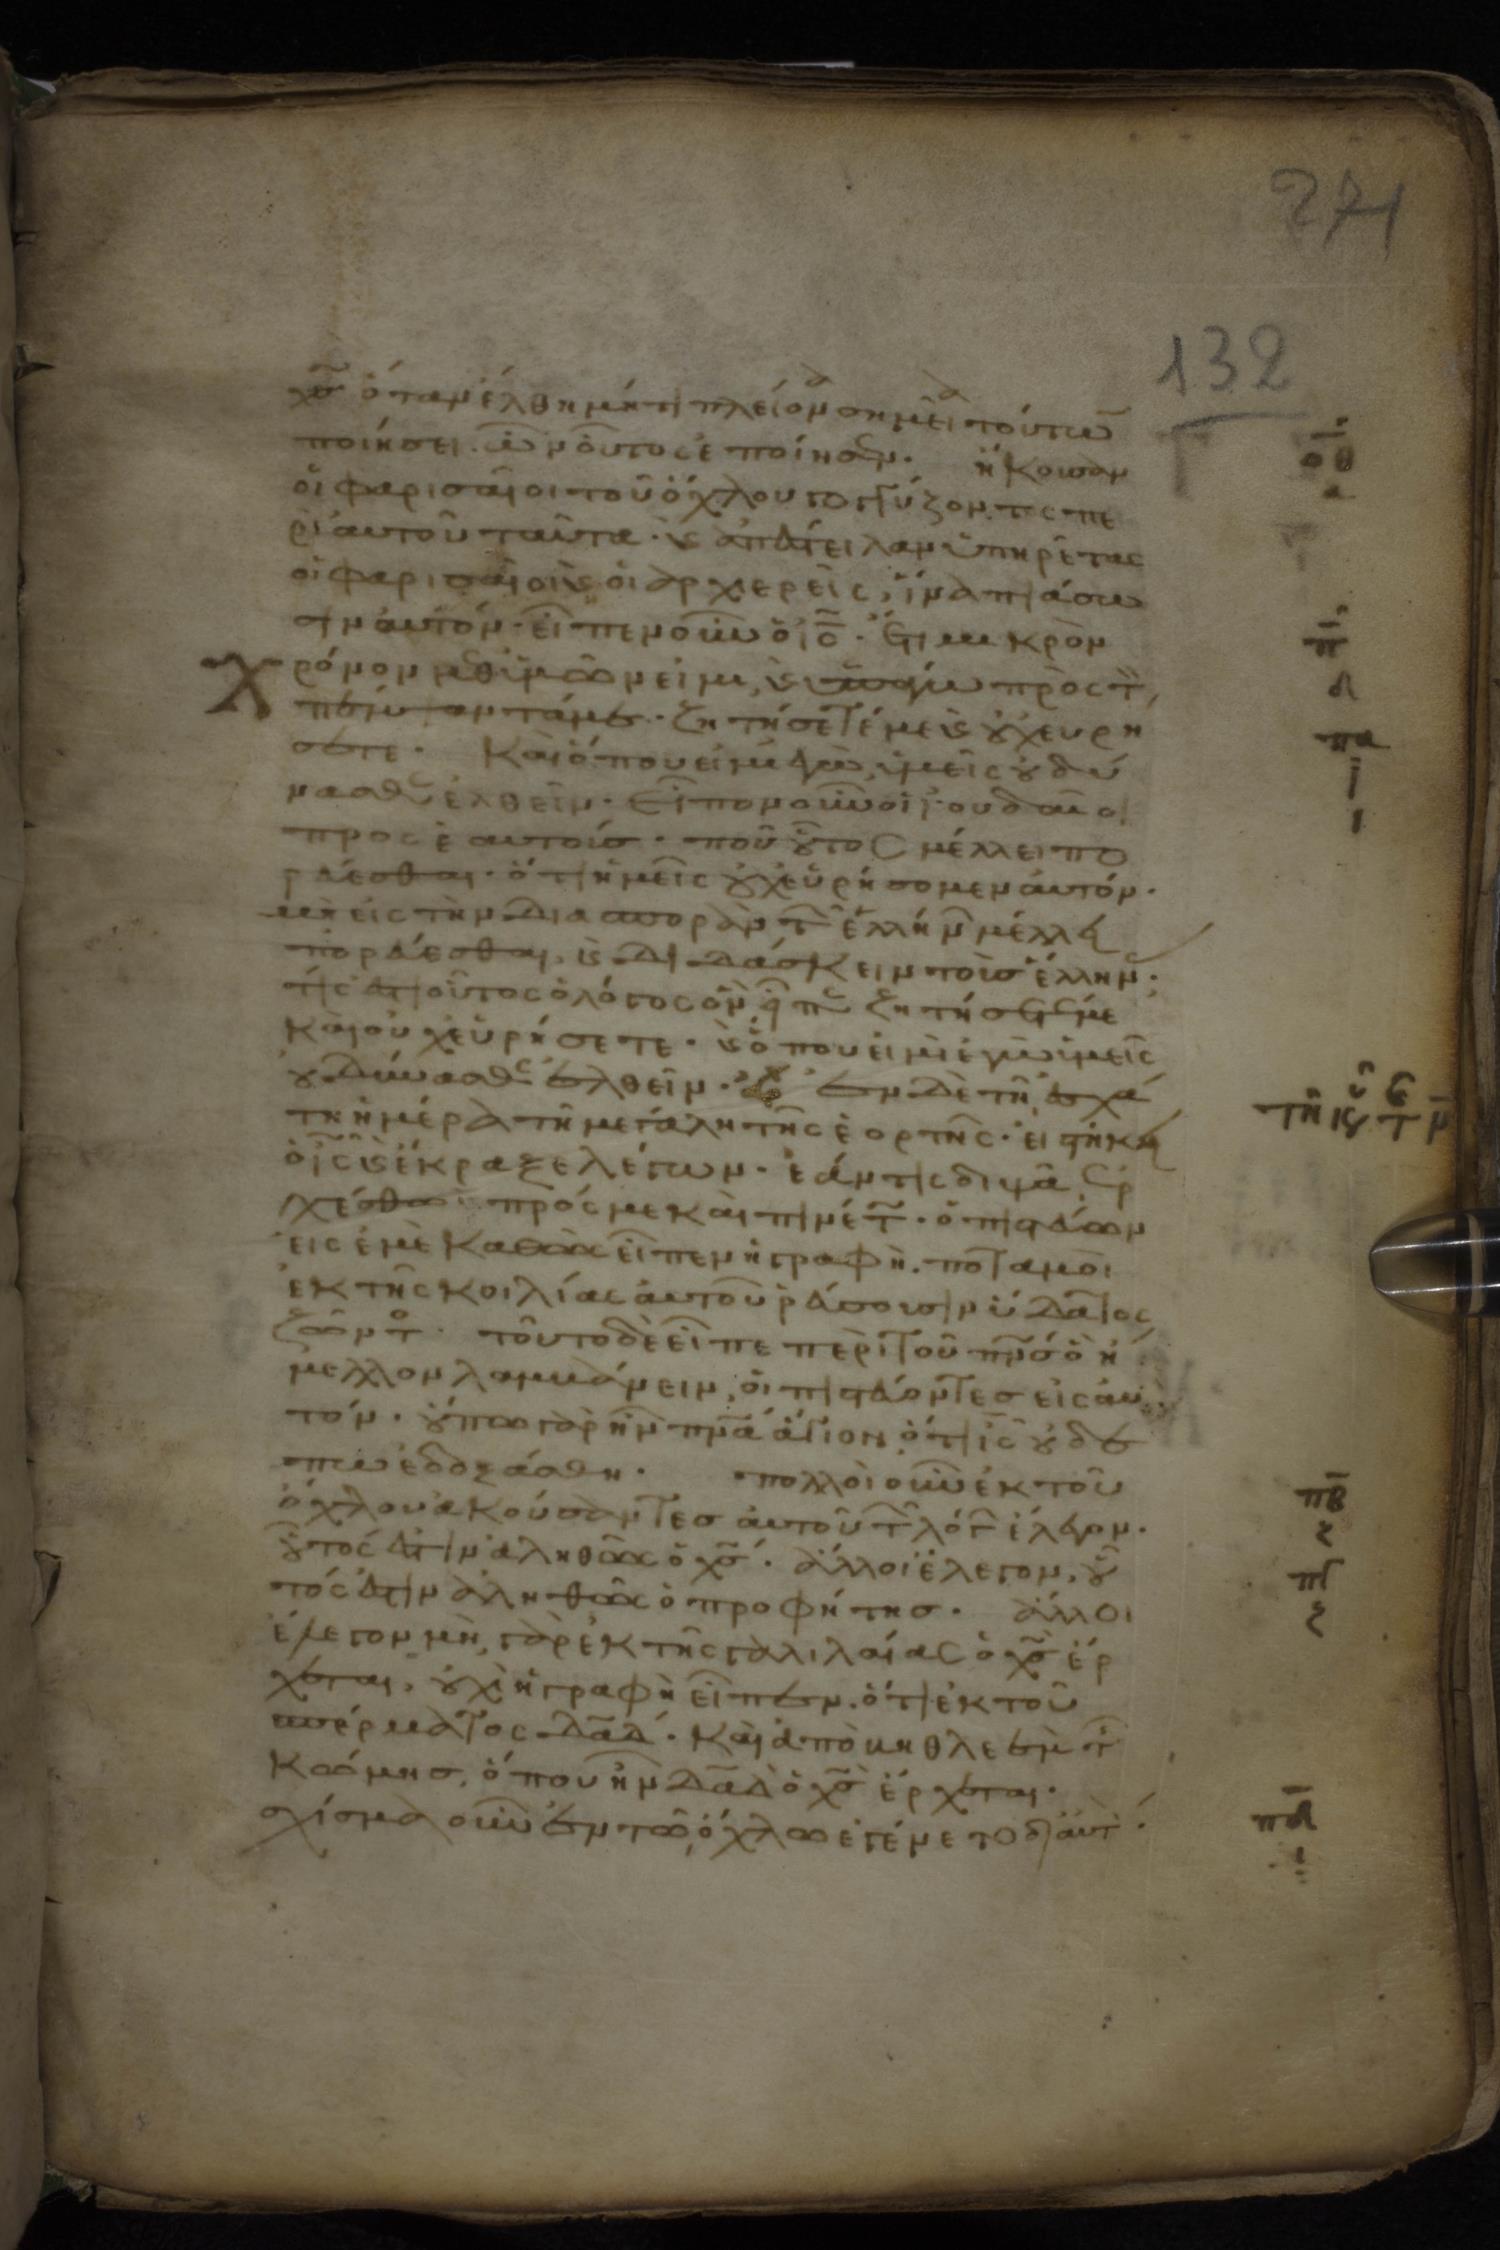 271
132
χς ὅταν ἔλθη μήτι πλείονα σημεῖα τούτων
ποιήσει. ὧν οὗτος ἐποίησεν. ἤκουσαν
οἱ φαρισαῖοι τοῦ ὄχλου γογγύζοντος πε
ρὶ αὐτοῦ ταῦτα. καὶ ἀπέστειλαν ὑπηρέτας
οἱ φαρισαῖοι καὶ οἱ ἀρχιερεῖς, ἵνα πιάσω
σιν αὐτόν. εἶπεν οὖν ὁ ις. ἔτι μικρὸν
χρόνον μεθ ὑμῶν εἰμι, καὶ ὑπάγω πρὸς τὸν
πέμψαντά με. ζητήσετέ με καὶ οὐχ εὑρή
σετε. Καὶ ὅπου εἰμὶ ἐγὼ, ὑμεῖς οὐ δύ
νασθε ἐλθεῖν. Εἶπον οὖν οἱ ἰουδαῖοι
πρὸς ἑαυτούς. ποῦ οὗτος μέλλει πο
ρεύεσθαι. ὅτι ἡμεῖς οὐχ εὑρήσομεν αὐτόν.
μὴ εἰς τὴν διασπορὰν τῶν ἑλλήνων μέλλει
πορεύεσθαι, καὶ διδάσκειν τοὺς ἕλληνας.
τίς ἐστι οὗτος ὁ λόγος ὃν εἶπε ζητήσετέ με
καὶ οὐχ εὑρήσετε. καὶ ὅπου εἰμὶ ἐγὼ ὑμεῖς
οὐ δύνασθε ἐλθεῖν. ἐν δὲ τῆ ἐσχά
τη ἡμέρα τῆ μεγάλη τῆς ἑορτῆς. εἱστήκει
ὁ ις καὶ ἔκραξε λέγων. ἐάν τις διψᾶ, ἐρ
χέσθω πρός με καὶ πινέτω. ὁ πιστεύων
εἰς ἐμὲ καθὼς εἶπεν ἡ γραφὴ. ποταμοὶ
ἐκ τῆς κοιλίας αὐτοῦ ῥεύσουσιν ὕδατος
ζῶντος. τοῦτο δὲ εἶπε περὶ τοῦ πνς ὃ ἤ
μελλον λαμβάνειν, οἱ πιστεύοντες εἰς αὐ
τόν. οὔπω γὰρ ἦν πνα ἅγιον, ὅτι ις οὐδέ
πω ἐδοξάσθη. πολλοὶ οὖν ἐκ τοῦ
ὄχλου ἀκούσαντες αὐτοῦ τὸν λόγον ἔλεγον.
οὗτός ἐστιν ἀληθῶς ὁ χς. ἄλλοι ἔλεγον, οὗ
τός ἐστιν ἀληθῶς ὁ προφήτης. ἄλλοι
ἔλεγον μὴ γὰρ ἐκ τῆς γαλιλαίας ὁ χς ἔρ
χεται, οὐχὶ ἡ γραφὴ εἶπεν. ὅτι ἐκ τοῦ
σπέρματος δαδ. καὶ ἀπὸ βηθλεὲμ τῆς
κώμης, ὅπου ἦν δαδ ὁ χς ἔρχεται.
σχίσμα οὖν ἐν τῶ ὄχλω ἐγένετο δι αὐτόν.
οθ
α
π
δ
πα
ι
πβ
ζ
πγ
ζ
πδ